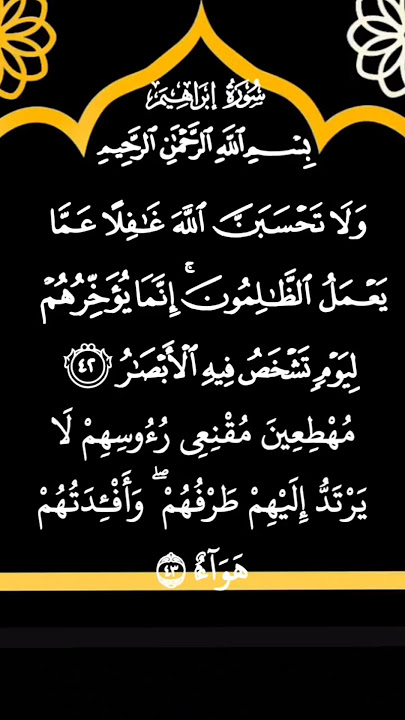 سُورَةُ إِبْرَاهِيم
بِسْمِ اللَّهِ الرَّحْمَٰنِ الرَّحِيمِ
وَلَا تَحْسَبَنَّ اللَّهَ غَافِلًا عَمَّا
يَعْمَلُ الظَّالِمُونَ ۚ إِنَّمَا يُؤَخِّرُهُمْ
لِيَوْمٍ تَشْخَصُ فِيهِ الْأَبْصَارُ ٤٢
مُهْطِعِينَ مُقْنِعِى رُءُوسِهِمْ لَا
يَرْتَدُّ إِلَيْهِمْ طَرْفُهُمْ ۖ وَأَفْئِدَتُهُمْ
هَوَآءٌ ٤٣